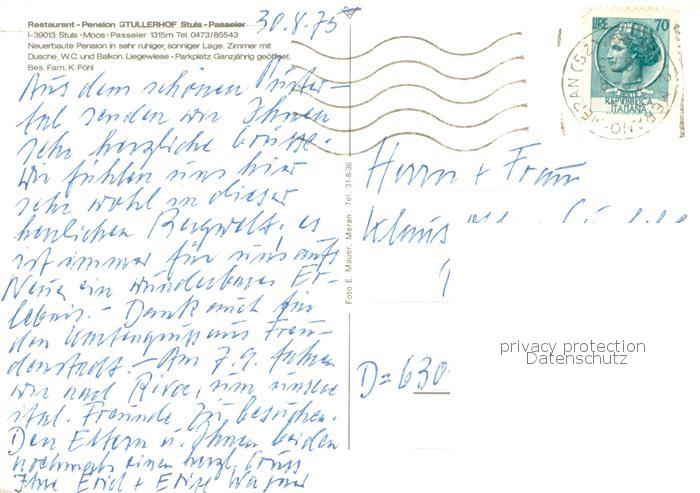 30.8.75
Restaurant - Pension STULLERHOF Stuls - Passeier
I-39013 Stuls · Moos · Passeier 1315m Tel. 0473/85543
Neuerbaute Pension in sehr ruhiger, sonniger Lage. Zimmer mit
Dusche, W.C. und Balkon. Liegewiese - Parkplatz. Ganzjährig geöffnet.
Bes. Fam. K. Pöhl
Aus dem schönen
tal senden wir Ihnen
sehr herzliche Grüsse.
Wir fühlen uns hier
sehr wohl in dieser
herrlichen Bergwelt, es
ist immer für uns aufs
Neue ein wunderbares Er-
lebnis. - Dank auch für
den Kartengruss aus Freu-
denstadt. - Am 7.9. fahren
wir nach Riva, um unsere
ital. Freunde zu besuchen.
Den Eltern u. Ihnen beiden
nochmals einen herzl. Gruss
Ihre Erich + Wagner
Foto E. Mauer, Meran, Tel. 31-8-36
LIRE 70
REPUBBLICA
ITALIANA
Herrn + Frau
Klaus
D = 630
privacy protection
Datenschutz